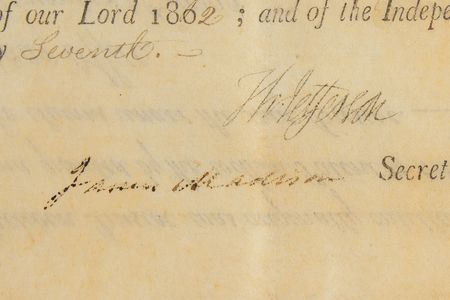 of our Lord 1802 ; and of the Indepe
y Seventh. —
Th Jefferson
James Madison Secret